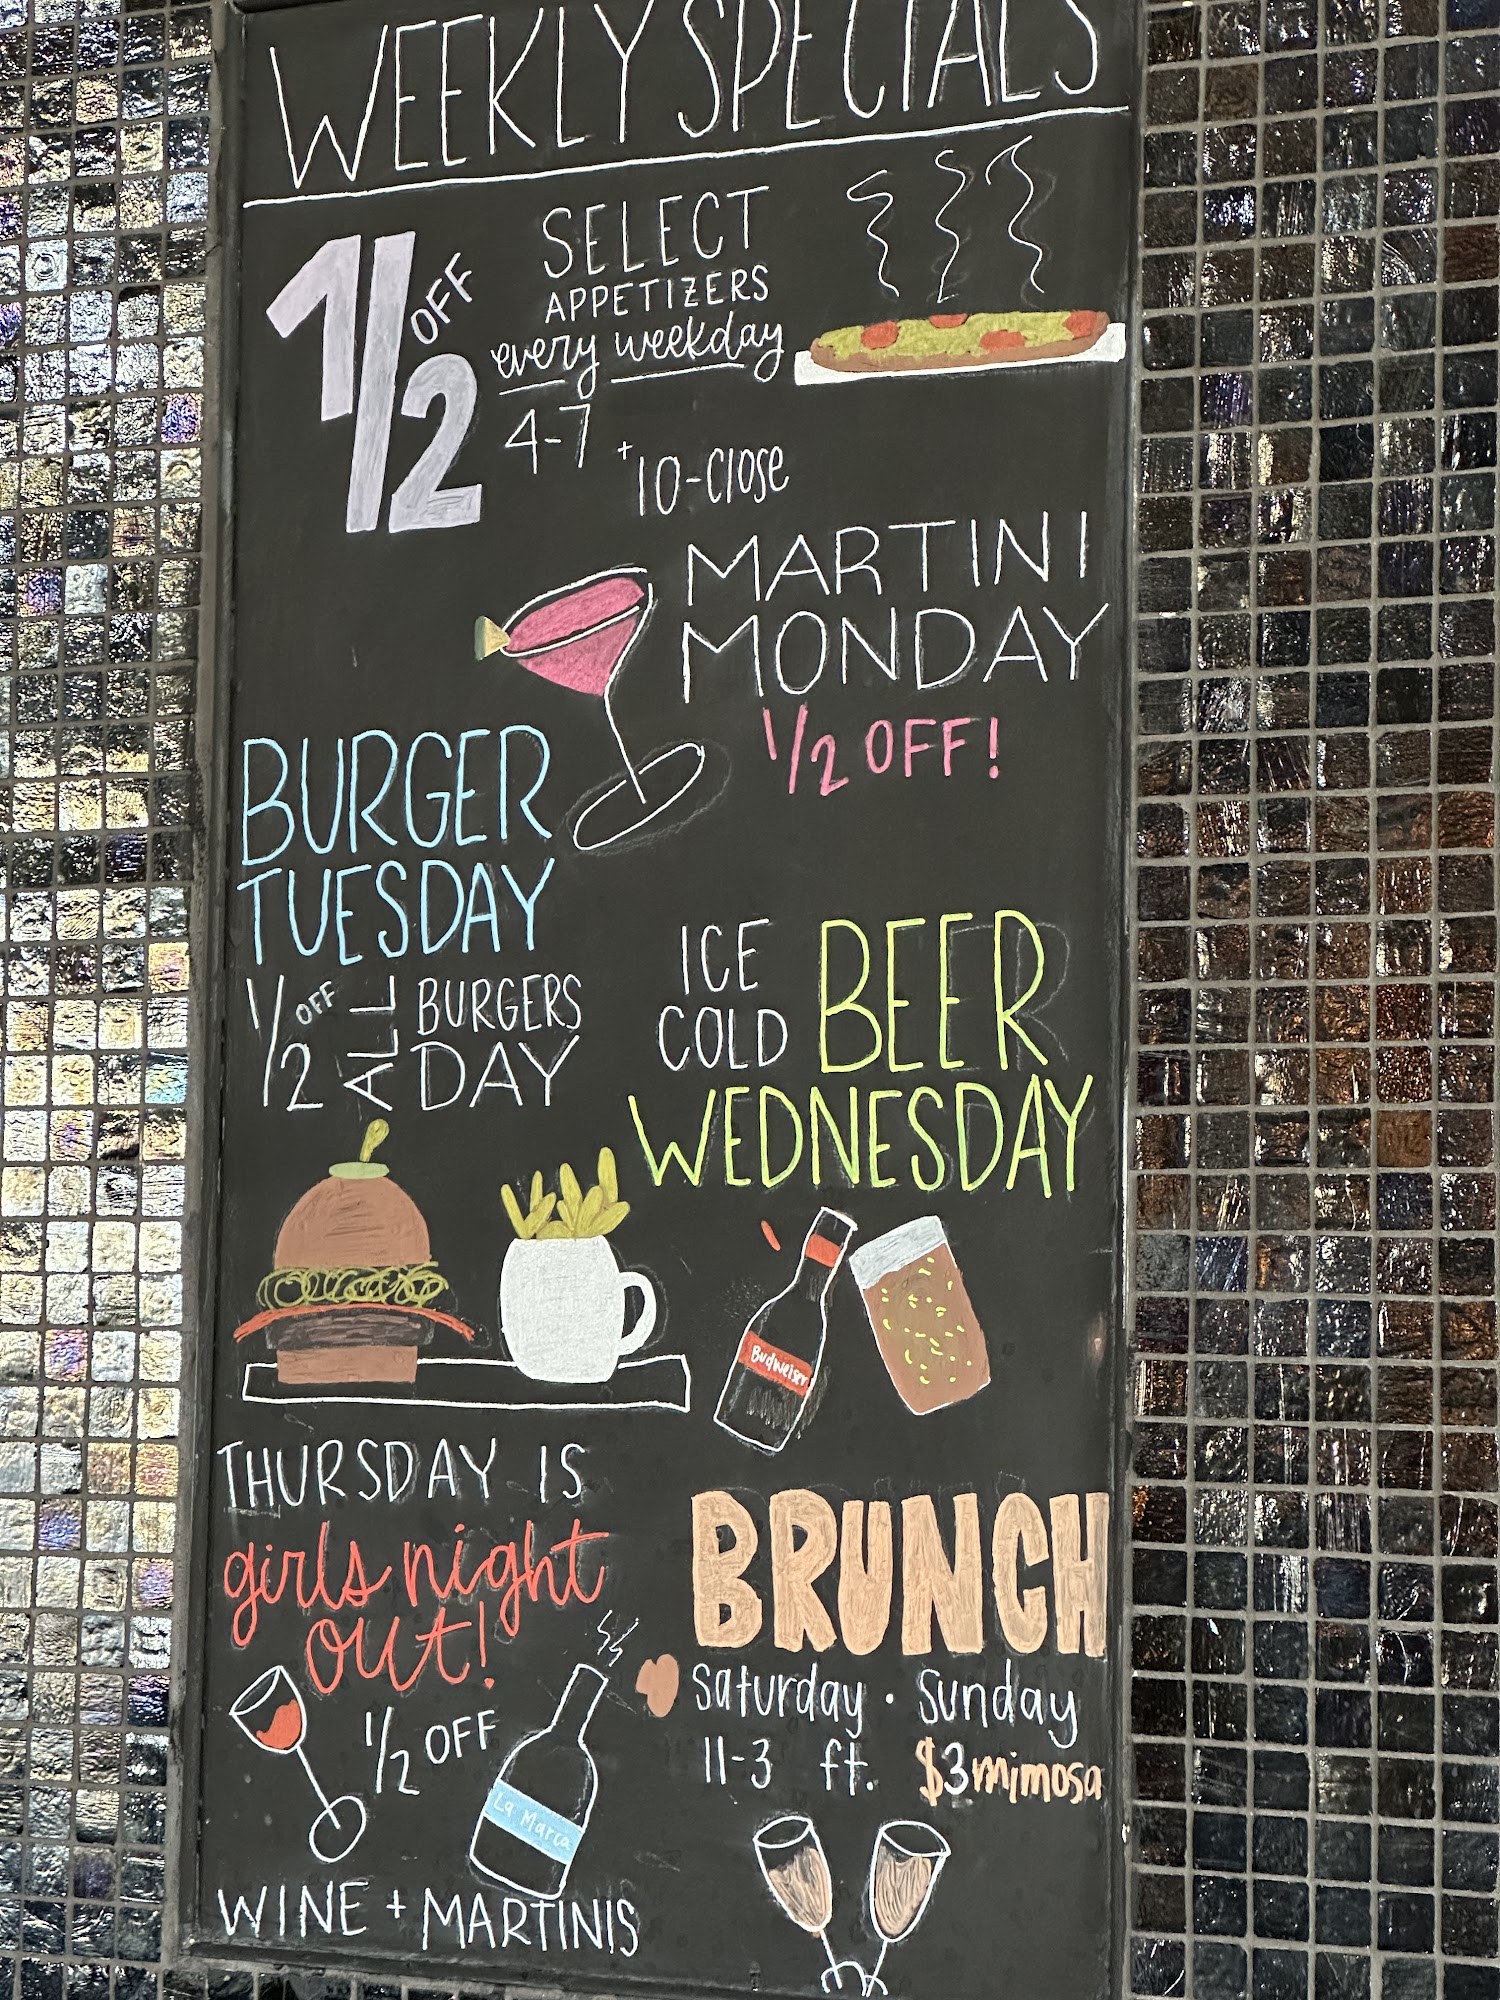 WEEKLY SPECIALS
1/2 OFF
SELECT
APPETIZERS
every weekday
4-7 + 10-close
MARTINI
MONDAY
1/2 OFF!
BURGER
TUESDAY
1/2 OFF ALL BURGERS
DAY
ICE
COLD BEER
WEDNESDAY
Budweiser
THURSDAY IS
girls night
out!
1/2 OFF
La Marca
WINE + MARTINIS
BRUNCH
saturday · sunday
11-3 ft. $3 mimosa